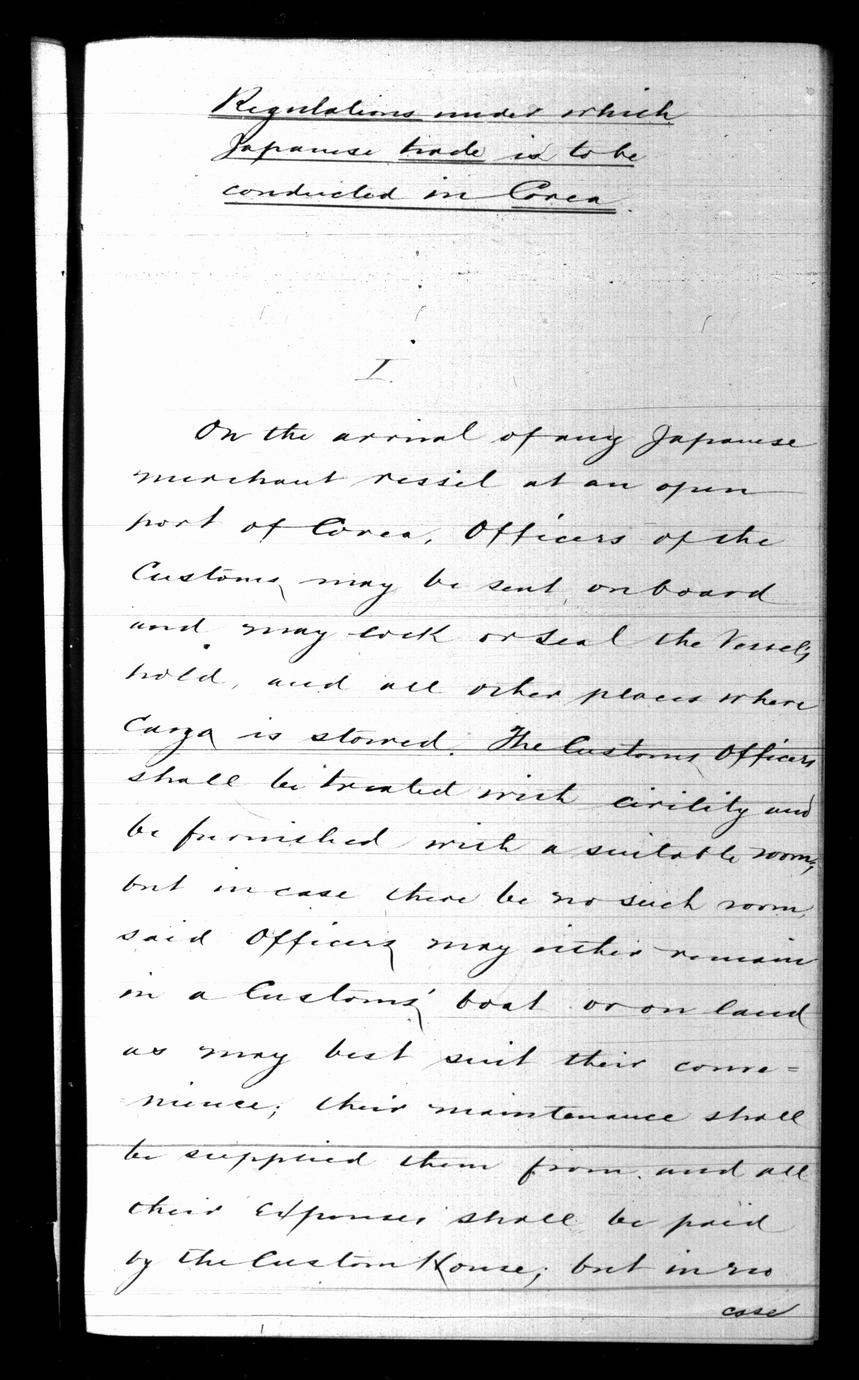 Regulations under which
Japanese trade is to be
conducted in Corea.
I.
On the arrival of any Japanese
merchant vessel at an open
port of Corea, Officers of the
Customs may be sent on board
and may lock or seal the Vessel's
hold, and all other places where
Cargo is stowed. The Customs Officers
shall be treated with civility and
be furnished with a suitable room;
but in case there be no such room,
said Officers may either remain
in a Customs' boat or on land
as may best suit their conve=
nience; their maintenance shall
be supplied them from and all
their Expenses shall be paid
by the Custom House; but in no
case